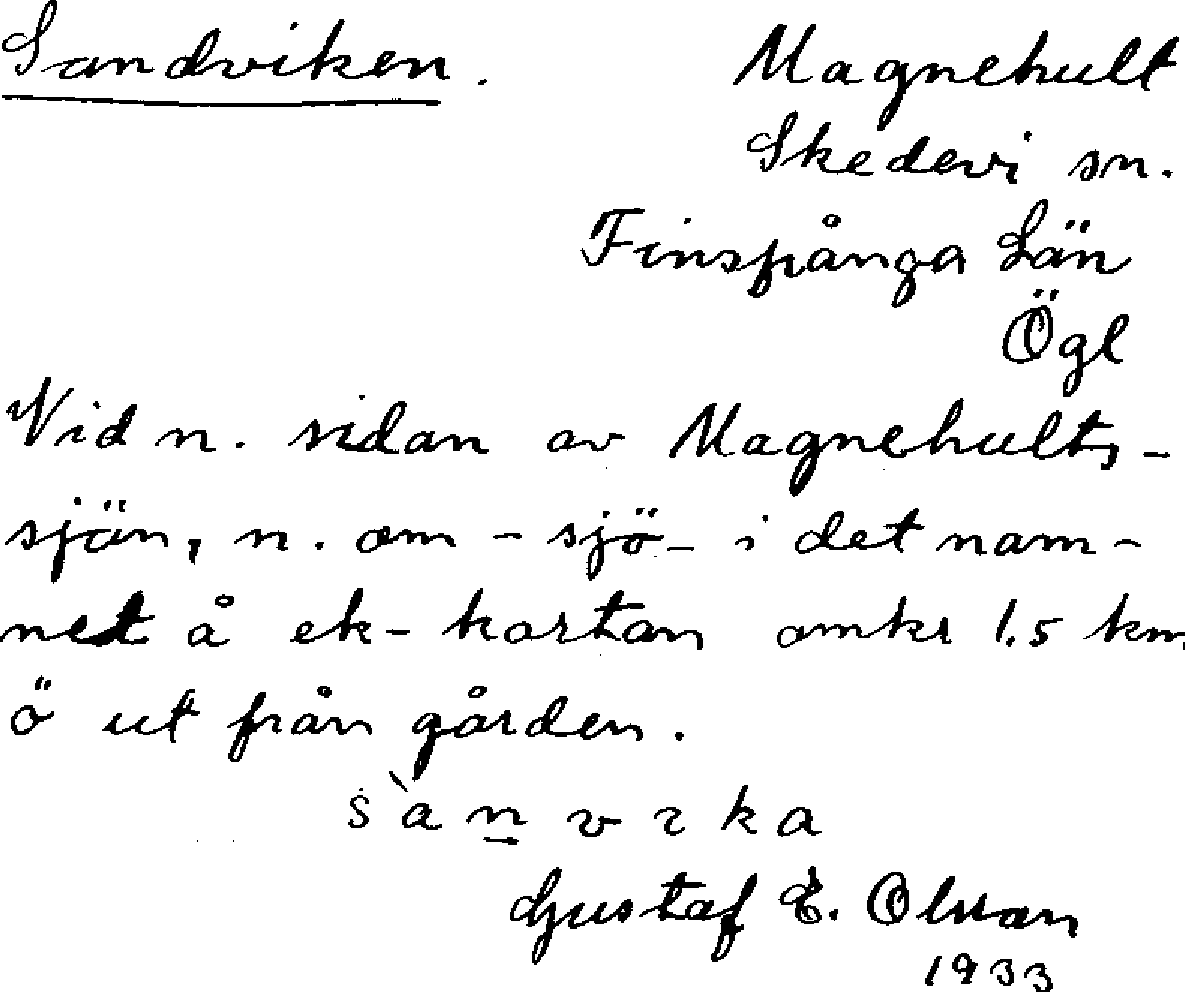 Sandviken.
Magnehult
Skedevi sn.
Finspånga Län
Ögl
Vid n. sidan av Magnehults-
sjön, n. om - sjö - i det nam-
net å ek-kartan omkr 1.5 km.
ö ut från gården.
s`an̲vıka
Gustaf E. Olsson
1933